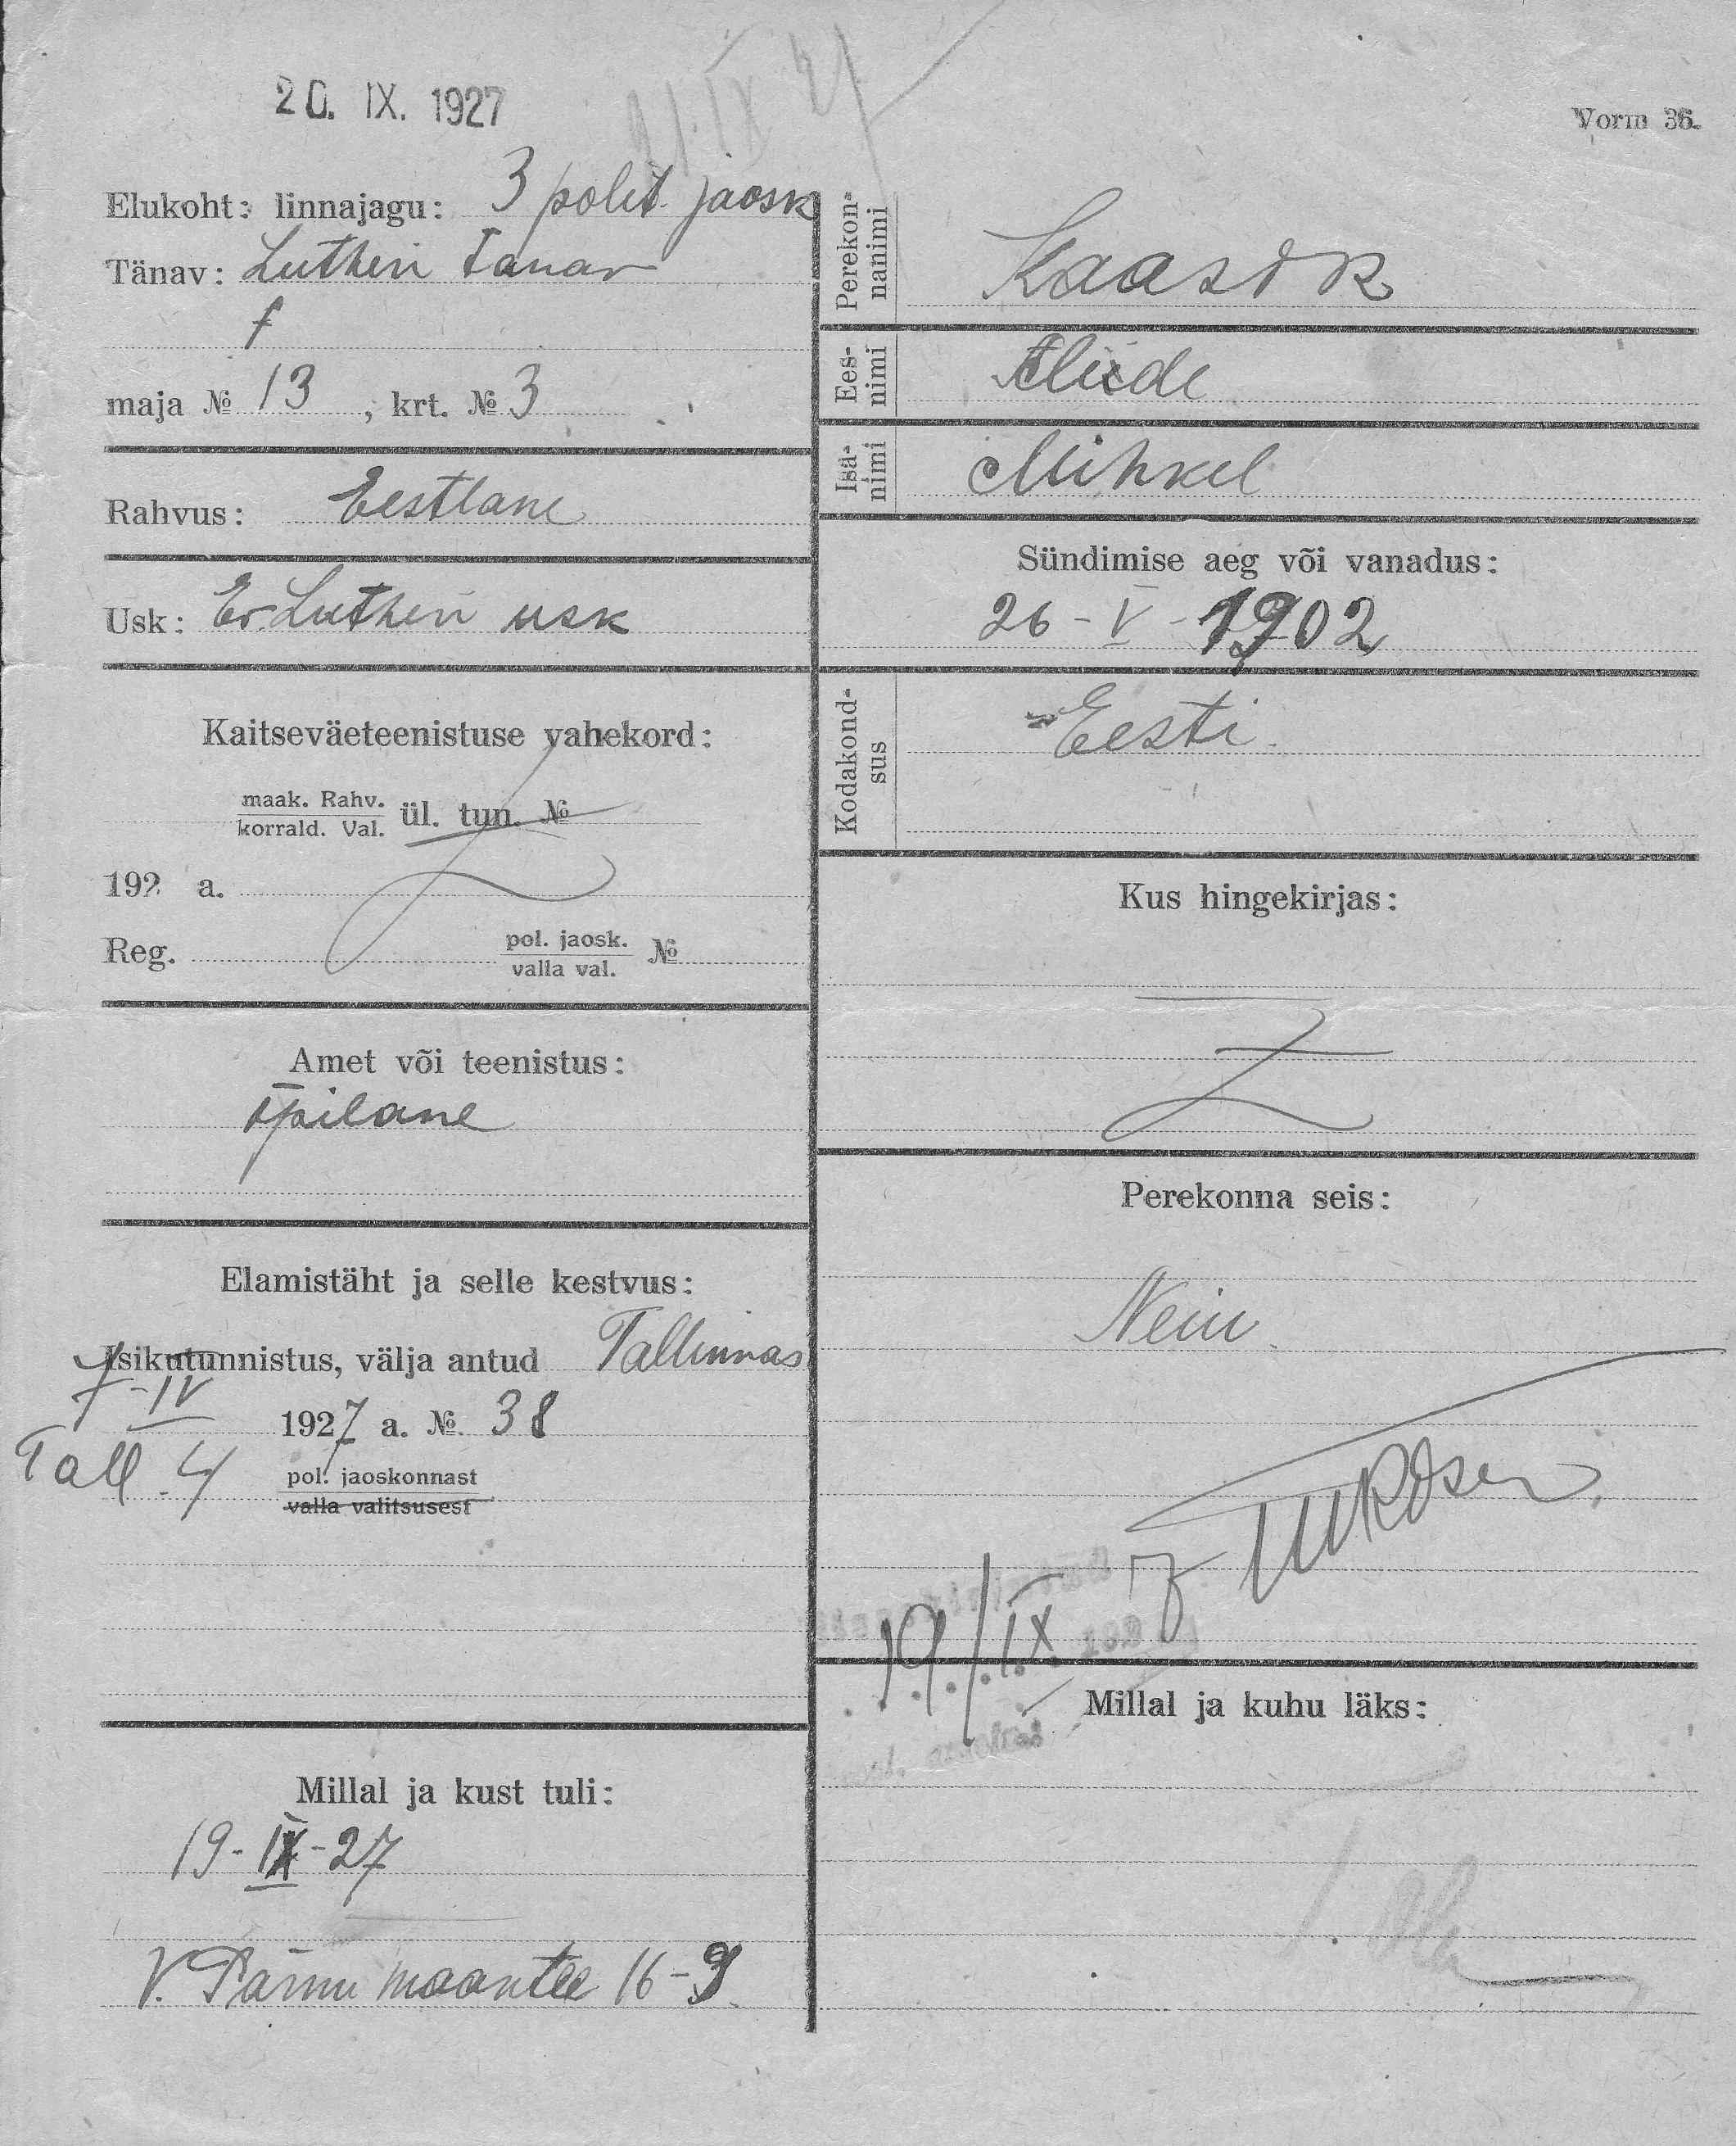 20. IX. 1927
Vorm 36.
Elukoht: linnajagu: 3 polit. jaosk
Tänav: Lutheri tänav
maja № 13, krt. № 3
Rahvus: Eestlane
Usk: Ev. Lutheri usk
Kaitseväeteenistuse vahekord:
maak. Rahv.
korrald. Val. ül. tun. №
192 a.
Reg. pol. jaosk. №
valla val.
Amet või teenistus:
õpilane
Elamistäht ja selle kestvus:
Isikutunnistus, välja antud Tallinnas
7-IV 1927 a. №. 38
Tall. 4 pol. jaoskonnast
valla valitsusest
Millal ja kust tuli:
19-IX-27
V. Pärnu maantee 16-9
Perekon-
nanimi Kaasik
Ees-
nimi Aliide
Isa-
nimi Mihkel
Sündimise aeg või vanadus:
26-V-1902
Kodakond-
sus Eesti
Kus hingekirjas:
Perekonna seis:
Neiu
19/IX
Millal ja kuhu läks: